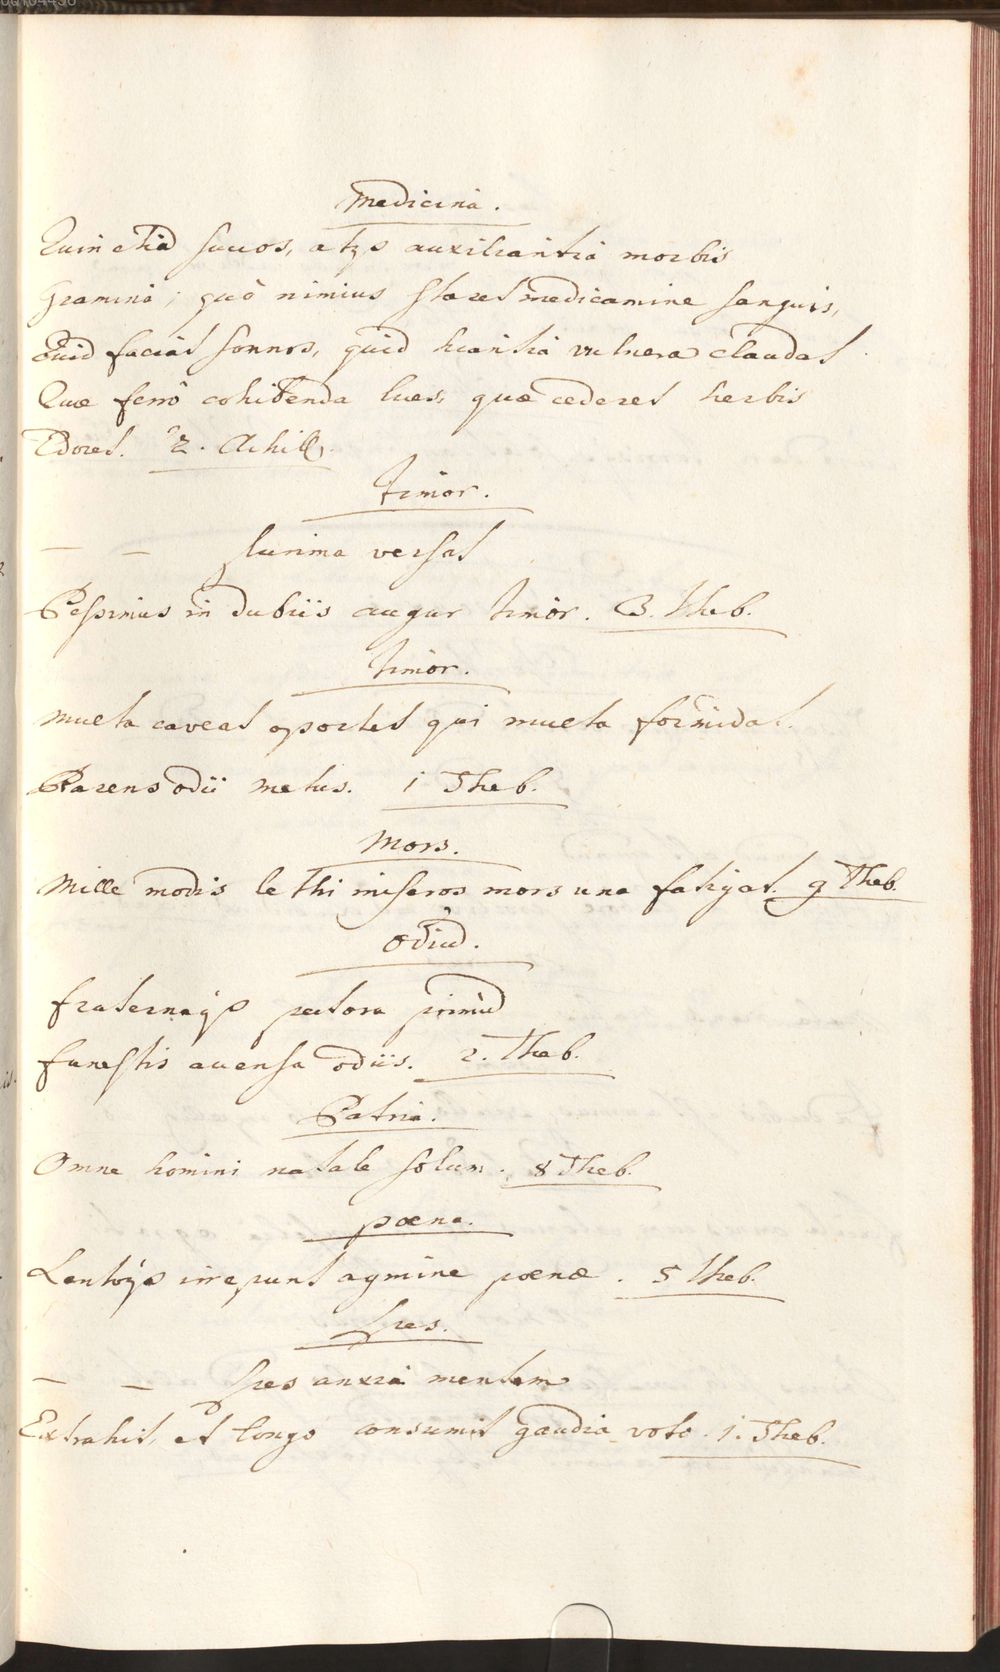 Medicina.
Quin etiã sucos, atqꝫ auxiliantia morbis
Gramina; quô nimius staret medicamine sanguis,
Quid faciat somnos, quid hiantia vulnera claudat
Quæ ferrô cohibenda lues, quæ cederet herbis
Edoces. 2. Achill.
Timor.
— — plurima versat
Pessimus in dubiis augur timor. 3. Theb.
Timor.
Multa caveat oportet qui multa formidat.
Parens odii metus. 1 Theb.
Mors.
Mille modis lethi miseros mors una fatigat. 9 Theb.
Odiũ.
fraternaqꝫ pectora primũ
funestis accensa odiis. 2. Theb.
Patria.
Omne homini natale solum. 8 Theb.
pœna.
Lentoqꝫ irrepunt agmine pœnæ. 5 Theb.
Spes.
— — spes anxia mentem
Extrahit, et longo consumit gaudia voto. 1. Theb.